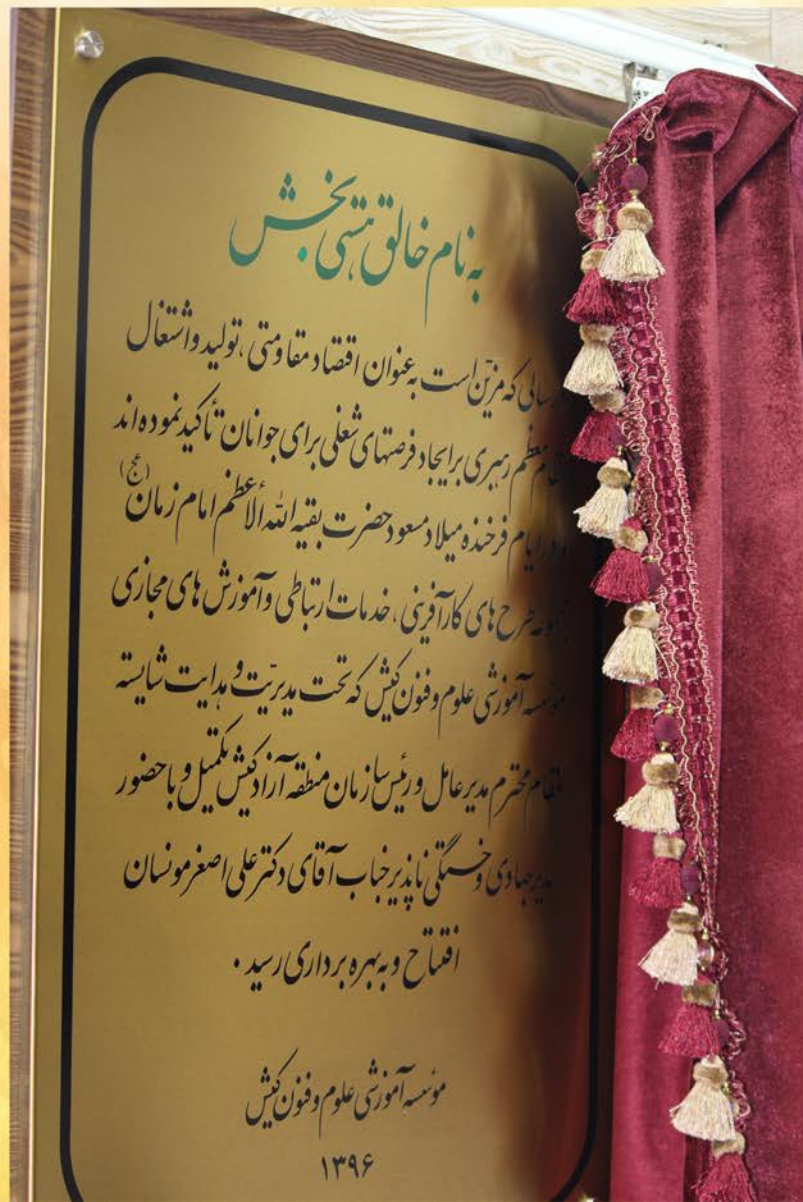 به نام خالق هستی بخش
سالی که مزیّن است به عنوان اقتصاد مقاومتی، تولید و اشتغال
مقام معظم رهبری بر ایجاد فرصتهای شغلی برای جوانان تأکید نموده اند
و در ایام فرخنده میلاد مسعود حضرت بقیه الله الأعظم امام زمان (عج)
طرح های کارآفرینی، خدمات ارتباطی و آموزش های مجازی
موسسه آموزشی علوم و فنون کیش که تحت مدیریّت و هدایت شایسته
مقام محترم مدیر عامل و رئیس سازمان منطقه آزاد کیش تکمیل و با حضور
مدیر جهادی و خستگی ناپذیر جناب آقای دکتر علی اصغر مونسان
افتتاح و به بهره برداری رسید.
موسسه آموزشی علوم و فنون کیش
۱۳۹۶